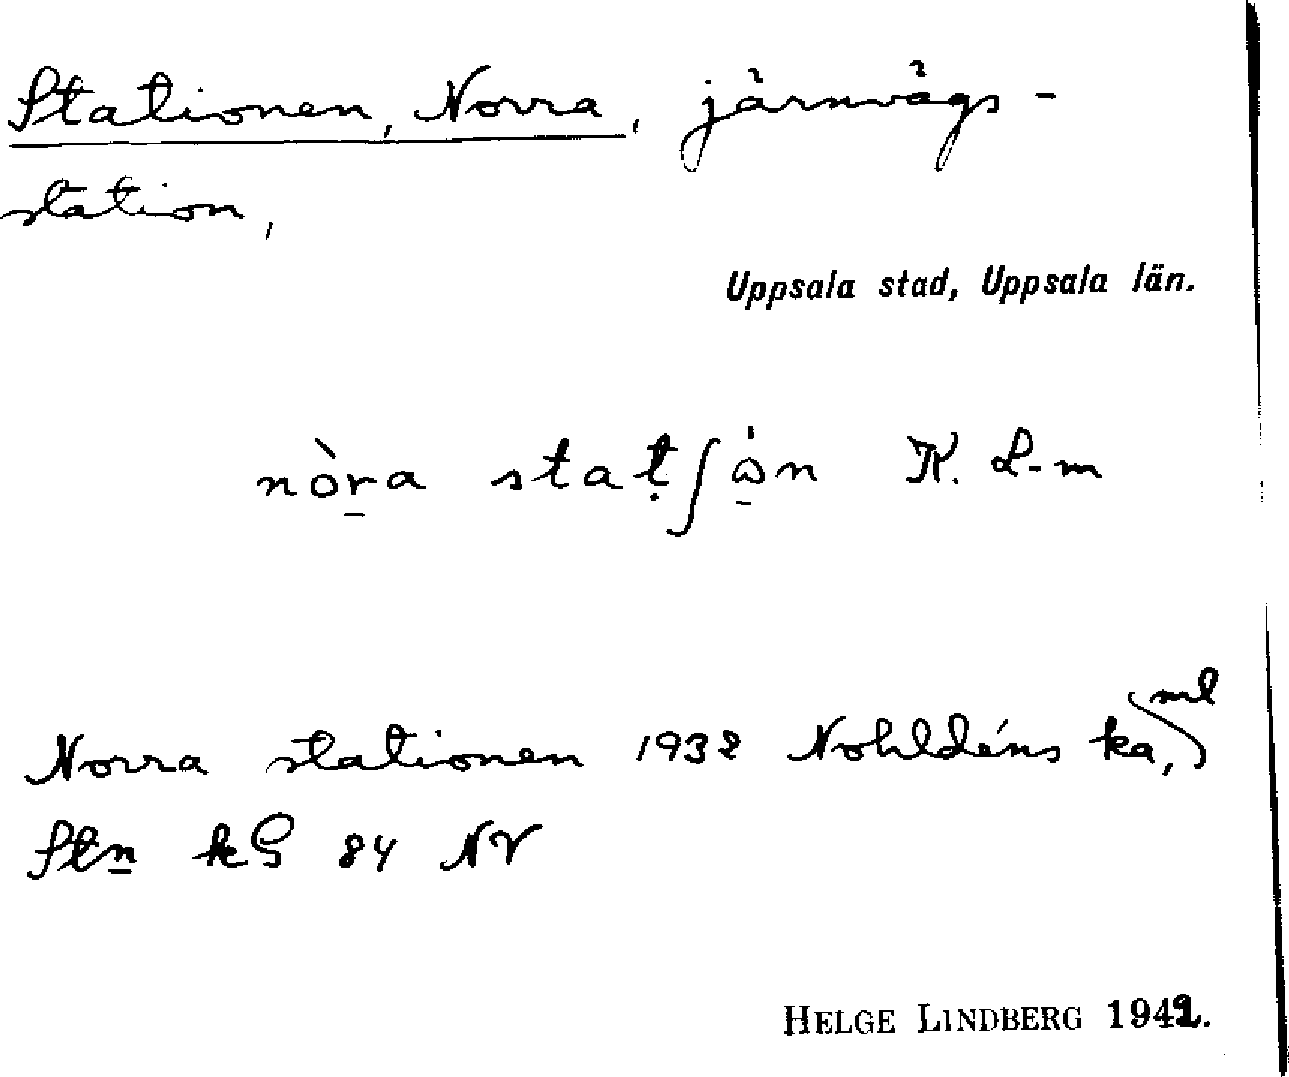 Stationen, Norra, järnvägs-
station,
Uppsala stad, Uppsala län.
nòr̲a staṭʃώ̲n K. L-m
Norra stationen 1932 Nohldéns ka, ml
Stn kG 84 NV
HELGE LINDBERG 1942.